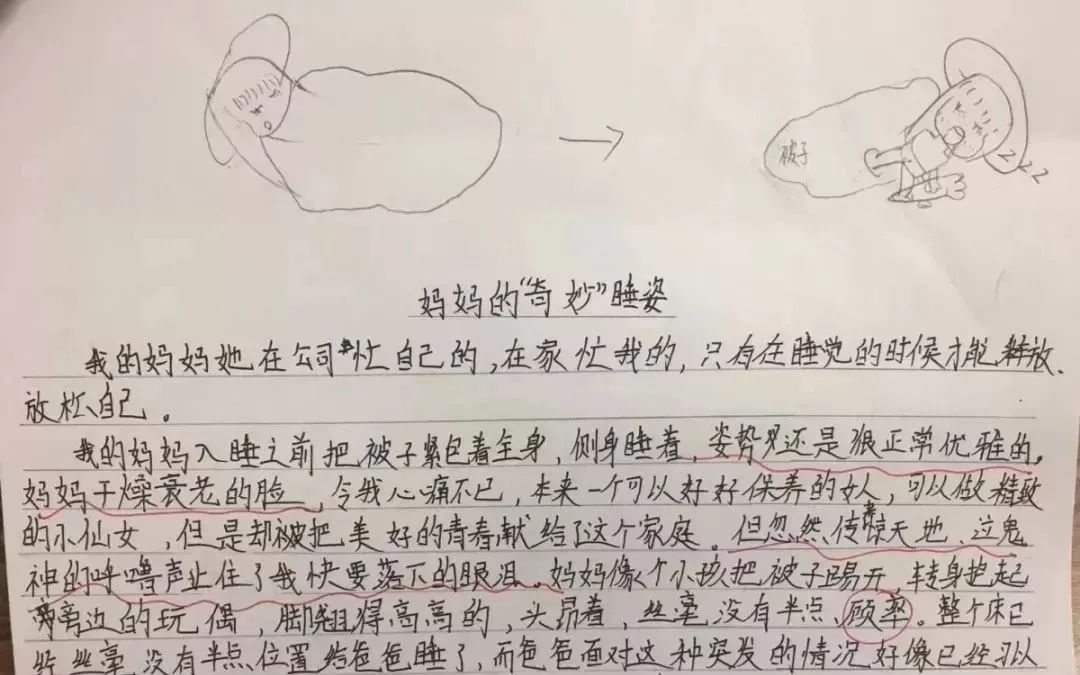 被子
zzz
妈妈的“奇妙”睡姿
我的妈妈她在公司忙自己的,在家忙我的,只有在睡觉的时候才能释放
放松自己。
我的妈妈入睡之前把被子紧包着全身,侧身睡着,姿势还是狠正常优雅的。
妈妈干燥衰老的脸,令我心痛不已,本来一个可以好好保养的女人,可以做精致
的小仙女,但是却被把美好的青春献给了这个家庭。但忽然,传来惊天地、泣鬼
神的呼噜声止住了我快要落下的眼泪。妈妈像个小孩把被子踢开,转身抱起
旁边的玩偶,脚翘得高高的,头昂着,丝毫没有半点顾率。整个床已
经丝毫没有半点位置给爸爸睡了,而爸爸面对这种突发的情况好像已经习以